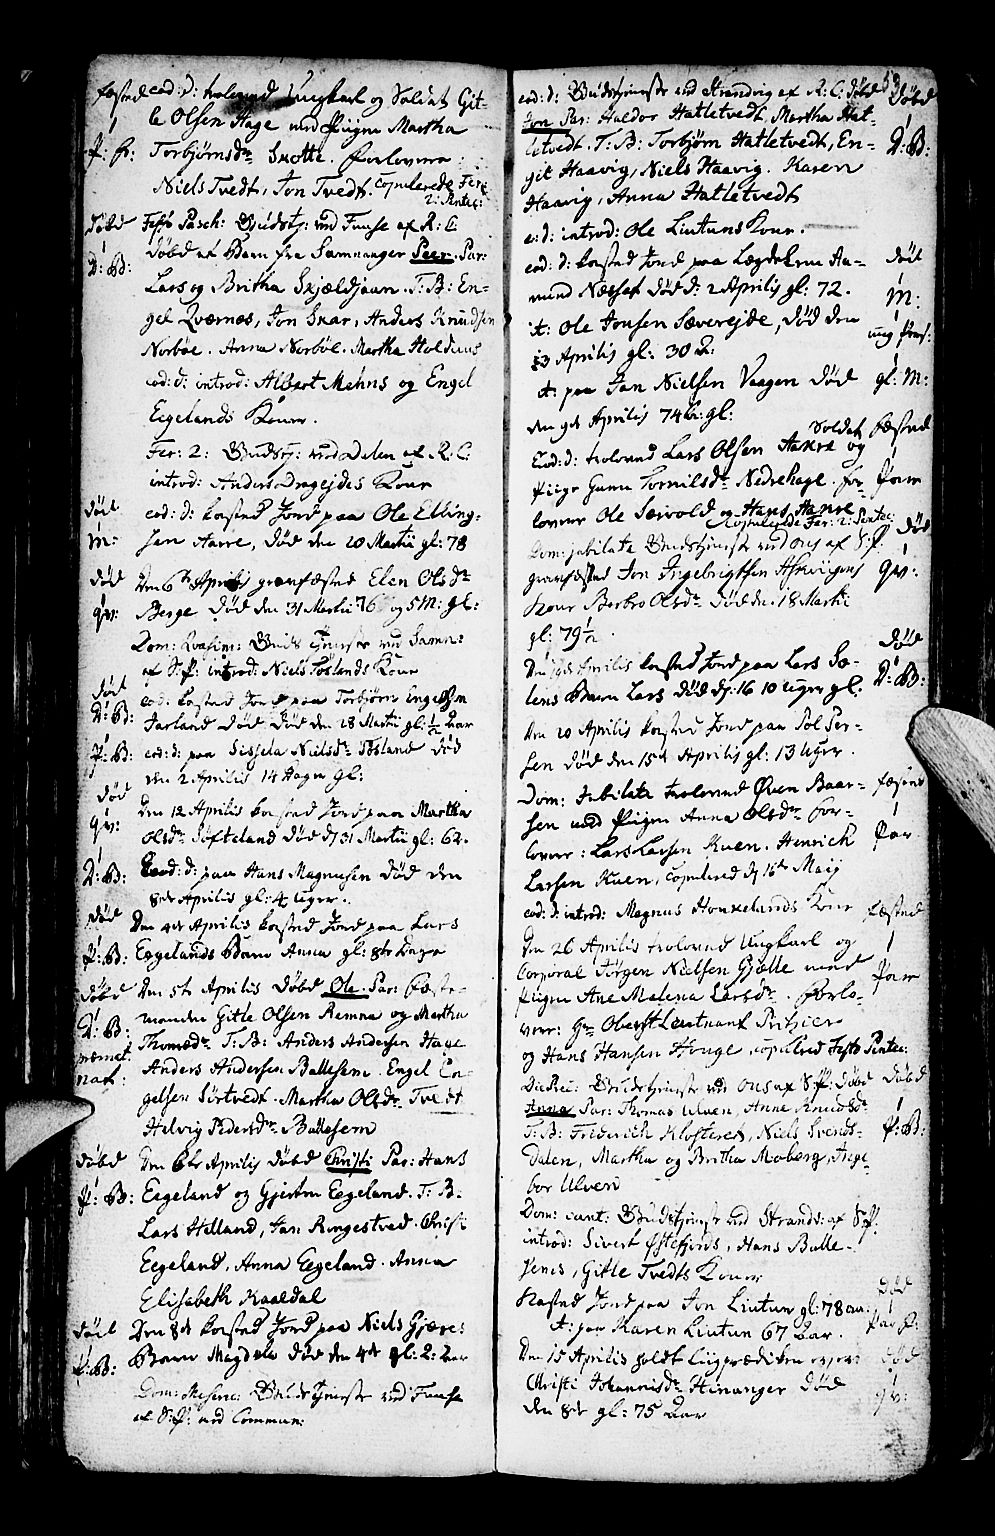 fæsted eod: d: trolovend Ungkarl og Soldat Git-
1 le Olsen Hage med Pigen Martha
P: Fr: Torbjørnsdr Skotte. Forlovere:
Niels Tvedt, Jon Tvedt. Copulerede Fer:
2: Pentec:
døbd Festo Pasch: Gudstj: ved Fuuse af R: C:
1 døbd et Barn fra Samnanger Peer. Par:
D: B: Lars og Britha Skjældjaun. T: B: En-
gel Qværnes, Jon Skar, Anders Knudsen
Norbøe. Anna Norbøe. Martha Holdhuus
eod: d: introd: Albert Mehns og Engel
Eegelands Koner.
Fer: 2: Gudstj: ved Dalen af R: C:
introd: Anders Dragejdes Kone
død eod: d: kasted Jord paa Ole Elling-
M: sen Aarre, død den 20 Martii gl: 78
død Den 6te Aprilis gravfæsted Elen Olsdr
qv: Berge død den 31 Martii 76 og 5 M: gl:
Dom: Qvasim: Guds Tjeneste ved Samn:
af S: P: introd: Niels Tøslands Kone
død eod: kasted Jord paa Torbjørn Engelsen
D: B: Jarland død den 28 Martii gl: 1/2 Aar
P: B: eod: d: paa Sissela Nielsdr Tøsland død
den 2 Aprilis 14 Dager gl:
død Den 12 Aprilis kasted Jord paa Martha
qv: Olsdr Søfteland død d: 31 Martii gl: 62.
1
D: B: Eod: d: paa Hans Magnesen død den
8de Aprilis gl: 4 Uger.
død Den 4de Aprilis kasted Jord paa Lars
P: B: Eegelands Barn Anna gl: 8te Dage
døbd Den 5te Aprilis døbd Ole. Par: Fæste-
D: B: manden Gitle Olsen Remna og Martha
Thomædr T: B: Anders Andersen Hage
nat: Anders Andersen Ballesem. Engel En-
gelsen Sørtvedt. Martha Olsdr Tvedt
Helvig Pedersdr Ballesem
døbd Den 6te Aprilis døbd Christi Par: Hans
P: B: Eegeland og Gjertru Eegeland. T: B:
Lars Helland, Jan Ringestved. Christi
Eegeland, Anna Eegeland. Anna
Elisabeth Kaaldal
død Den 8de kasted Jord paa Niels Gjæres
P: B: Barn Magdela død den 4de gl: 2: Aar
Dom: Miseric: Guds Tjeneste ved Fuuse
af S: P: med Commun:
eod: d: Gudstjeneste ved Strandvig af R: C: døbd døbd
Jon Par: Haldor Hatletvedt, Martha Hat- 1
letvedt. T: B: Torbjørn Hatletvedt, En- D: B:
git Haavig, Niels Haavig. Karen
Haavig, Anna Hatletvedt
e: d: introd: Ole Liutuns Kone.
eod: d: kasted Jord paa Lægdskrm Aa- død
mund Næsset død d: 2 Aprilis gl: 72. M:
it: Ole Jonsen Sæverejde, død den ung
23 Aprilis gl: 30 Aar
it: paa Jan Nielsen Vaagen død gl: M:
den 9de Aprilis 74 Aar gl:
Soldat fæsted
Eod: d: trolovend Lars Olsen Aarre og 1
Pige Guru Tornilsdr Nedrehage. For- Par
lovere Ole Sævold og Hans Aarre
Copulerede Fer: 2: Pentec: død
Dom: jubilate Gudstjeneste ved Ous af S: P:
gravfæsted Jon Ingebrigtsen Askvigens qv:
Kone Berbro Olsdr død den 18 Martii
gl: 79 1/2. død
Den Aprilis kasted Jord paa Lars Sæ- D: B:
lens Barn Lars død d: 16 10 Uger gl:
Den 20 Aprilis kasted Jord paa Pol Per-
sen død den 15de Aprilis gl: 13 Uger.
Dom: Jubilate trolovend Øven Baar- fæstend
sen med Pigen Anna Olsdr For- 1
lovere: Lars Larsen Kuen. Henrich Par
Larsen Kuen, Copulered d: 16de Maij
eod: d: introd: Magnus Honkelands Kone fæsted
Den 26 Aprilis trolovend Ungkarl og 1
Corporal Jørgen Nielsen Gjælle med Par
Pigen Ane Malena Larsdr. Forlo-
vere: Hr Oberst Leutnant Pritzier
og Hans Hansen Houge copulered Festo Pentec:
Die Prec: Gudstjeneste ved Ous af S: P: døbd døbd
Anna Par: Thomas Ulven, Anne Knudsdr 1
T: B: Friderich Klosteret, Niels Svends- P: B:
dalen, Martha og Britha Moberg, Inge-
bor Ulven
Dom: cant: Gudstjeneste ved Strands: af S: P:
introd: Sivert Østefjords, Hans Balle-
sems, Gitle Tvedts Koner
Kasted Jord paa Jon Liutun gl: 78 aar: død
it: paa Karen Liutun 67 Aar. Par
Den 15 Aprilis holdt Liigprædiken over død
Christi Johannisdr Hinanger død qv:
den 8de gl: 75 Aar